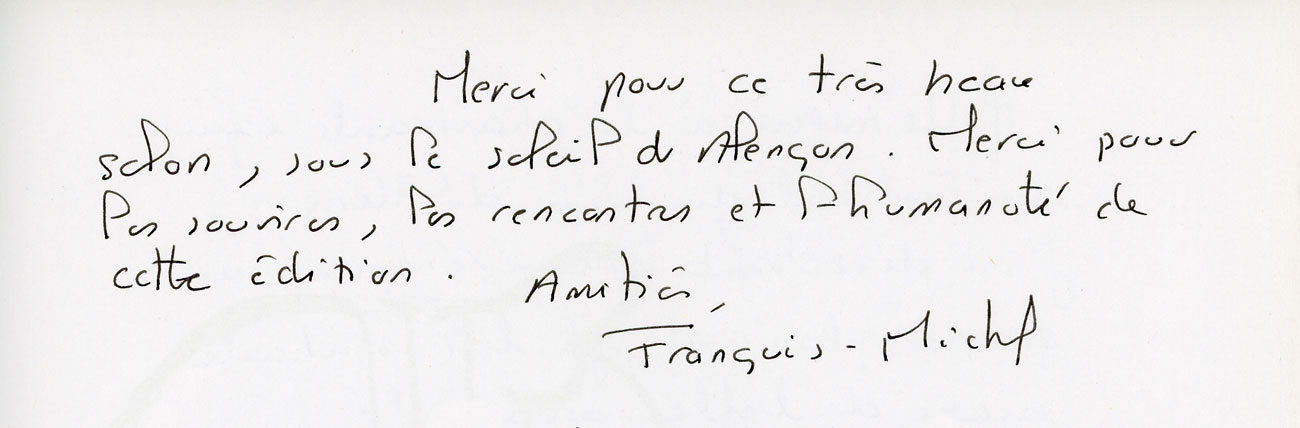 Merci pour ce très beau
salon, sous le soleil d'Alençon. Merci pour
les sourires, les rencontres et l'humanité de
cette édition.
Amitiés,
François-Michel